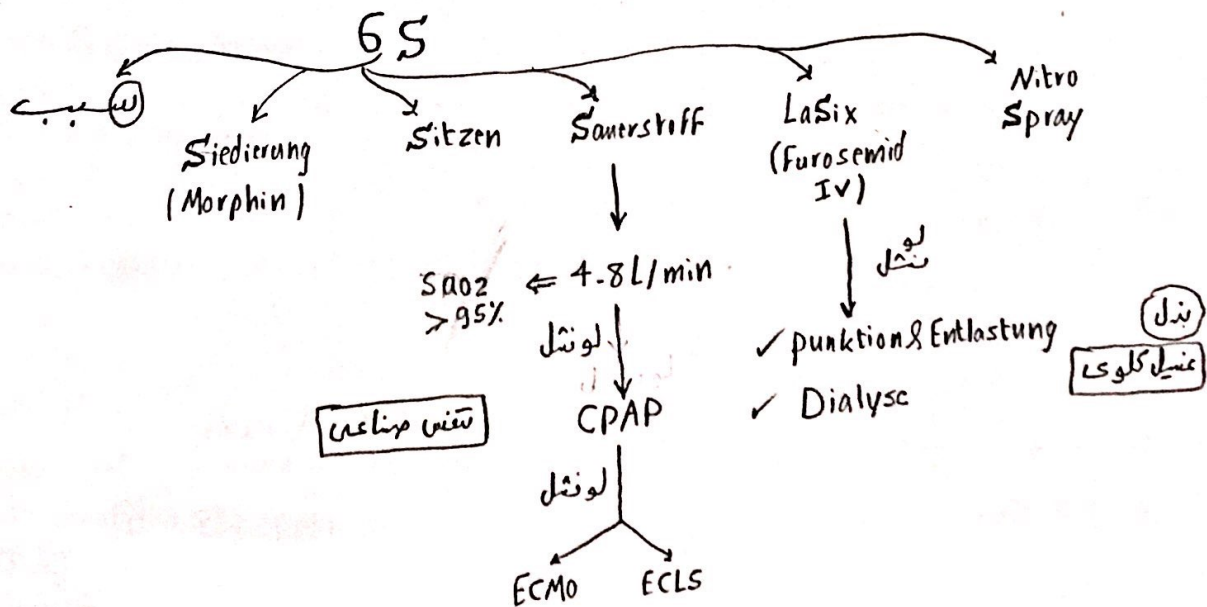 6 S
سبب
Siedierung
(Morphin)
Sitzen
Sauerstoff
LaSix
(Furosemid
IV)
Nitro
Spray
4-8 L/min
Sao2
>95%
لو نشل
CPAP
تنفس صناعي
لو نشل
ECMO
ECLS
لو نشل
✓ punktion & Entlastung
بذل
✓ Dialyse
غسيل كلوى